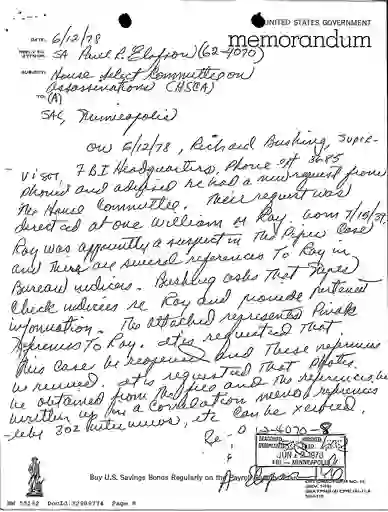 UNITED STATES GOVERNMENT
memorandum
DATE: 6/12/78
REPLY TO
ATTN OF: SA Paul R. (62-4070)
SUBJECT: House Select Committee on
Assassinations (HSCA)
TO: (A)
SAC, Minneapolis
On 6/12/78, Richard Bushing, Super-
visor, FBI Headquarters, Phone ext 3685
phoned and advised he had a new request from
the House Committee. Their request was
directed at one William Ray, born 7/
Ray was apparently a suspect in the Case
and there are several references to Ray in
Bureau indices. Bushing asks that
check indices re Ray and provide pertinent
information. The attached represents
references to Ray. It is requested that
this case be reopened and these references
be reviewed. It is requested that photo
be obtained from the file and the references be
written up in a correlation memo, references
like 302 interviews, etc can be xeroxed.
JUN 1978
FBI - MINNEAPOLIS
Buy U.S. Savings Bonds Regularly on the Payroll
NW 55162 DocId:32989774 Page 8